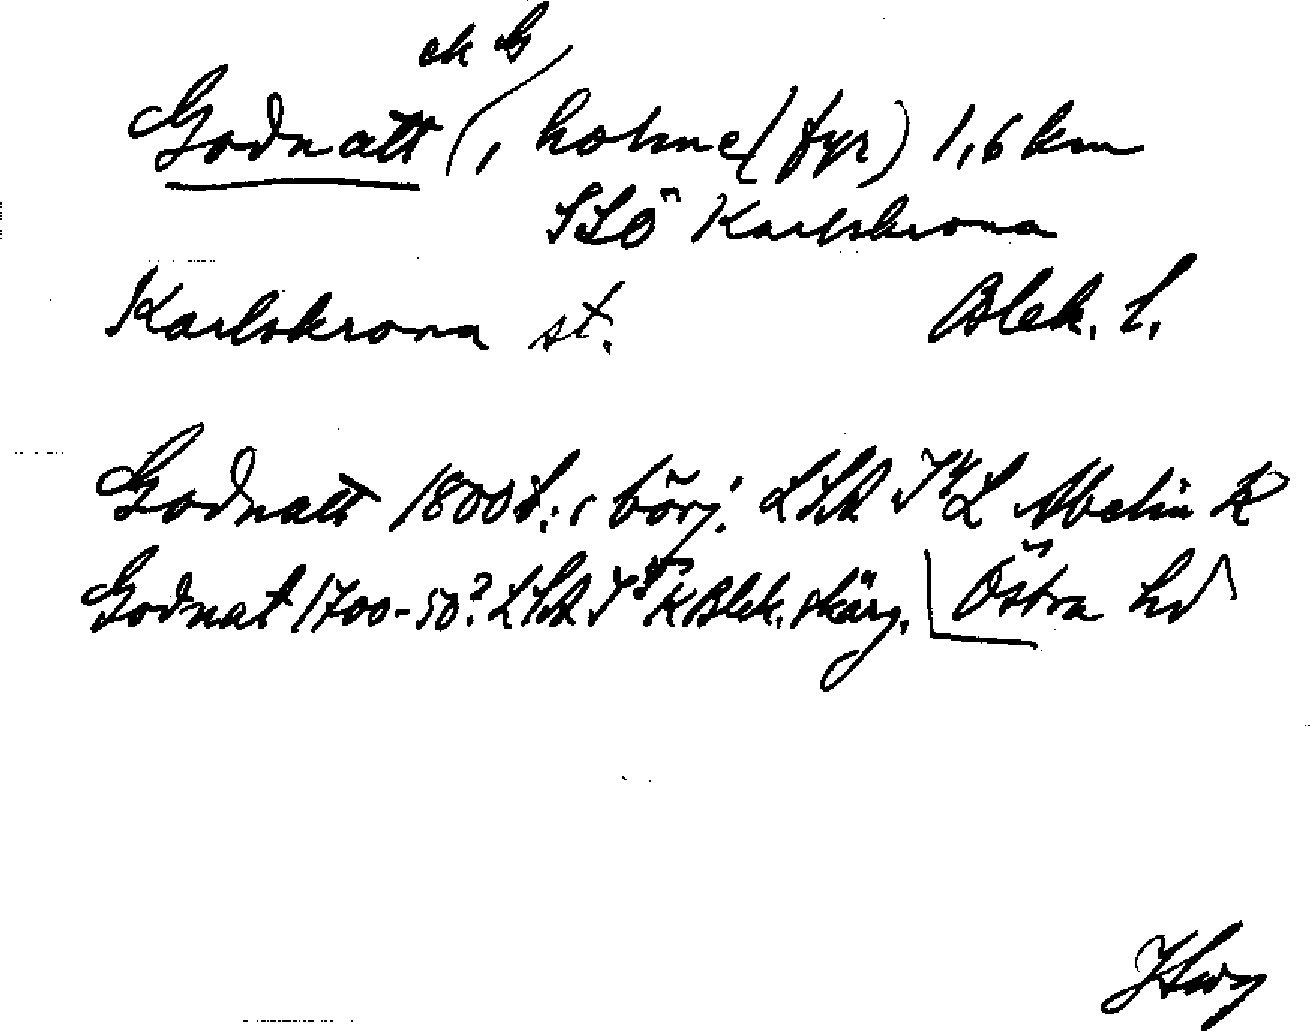 ek G
Godnatt, holme (fyr) 1,6 km
SSÖ Karlskrona
Karlskrona st. Blek. l.
Godnatt 1800t.:s börj. LSA Abelin K
Godnat 1700-50? LSA K Blek. skärg. Östra hd